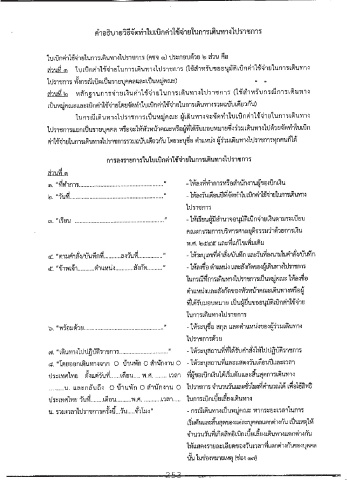 คำอธิบายวิธีจัดทำใบเบิกค่าใช้จ่ายในการเดินทางไปราชการ
ใบเบิกค่าใช้จ่ายในการเดินทางไปราชการ (คชจ ๑) ประกอบด้วย ๒ ส่วน คือ
ส่วนที่ ๑ ใบเบิกค่าใช้จ่ายในการเดินทางไปราชการ (ใช้สำหรับขออนุมัติเบิกค่าใช้จ่ายในการเดินทาง
ไปราชการ ทั้งกรณีเบิกเป็นรายบุคคลและเป็นหมู่คณะ)
ส่วนที่ ๒ หลักฐานการจ่ายเงินค่าใช้จ่ายในการเดินทางไปราชการ (ใช้สำหรับกรณีการเดินทาง
เป็นหมู่คณะและเบิกค่าใช้จ่ายโดยจัดทำใบเบิกค่าใช้จ่ายในการเดินทางรวมฉบับเดียวกัน)
ในกรณีเดินทางไปราชการเป็นหมู่คณะ ผู้เดินทางจะจัดทำใบเบิกค่าใช้จ่ายในการเดินทาง
ไปราชการแยกเป็นรายบุคคล หรือจะให้หัวหน้าคณะหรือผู้ที่ได้รับมอบหมายซึ่งร่วมเดินทางไปด้วยจัดทำใบเบิก
ค่าใช้จ่ายในการเดินทางไปราชการรวมฉบับเดียวกัน โดยระบุชื่อ ตำแหน่ง ผู้ร่วมเดินทางไปราชการทุกคนก็ได้
การลงรายการในใบเบิกค่าใช้จ่ายในการเดินทางไปราชการ
ส่วนที่ ๑
๑. "ที่ทำการ................................" - ให้ลงที่ทำการหรือสำนักงานผู้ขอเบิกเงิน
๒. "วันที่................................" - ให้ลงวันเดือนปีที่จัดทำใบเบิกค่าใช้จ่ายในการเดินทาง
ไปราชการ
๓. "เรียน ................................" - ให้เรียนผู้มีอำนาจอนุมัติเบิกจ่ายเงินตามระเบียบ
คณะกรรมการบริหารศาลยุติธรรมว่าด้วยการเงิน
และที่แก้ไขเพิ่มเติม
๔. "ตามคำสั่ง/บันทึกที่............ลงวันที่............" - ให้ระบุเลขที่คำสั่ง/บันทึก และวันที่ลงนามในคำสั่ง/บันทึก
๕. "ข้าพเจ้า............ตำแหน่ง............สังกัด........" - ให้ลงชื่อ ตำแหน่ง และสังกัดของผู้เดินทางไปราชการ
ในกรณีที่การเดินทางไปราชการเป็นหมู่คณะ ให้ลงชื่อ
ตำแหน่ง และสังกัดของหัวหน้าคณะเดินทางหรือผู้
ที่ได้รับมอบหมาย เป็นผู้ยื่นขออนุมัติเบิกค่าใช้จ่าย
ในการเดินทางไปราชการ
๖. "พร้อมด้วย................................" - ให้ระบุชื่อ สกุล และตำแหน่งของผู้ร่วมเดินทาง
ไปราชการด้วย
๗. "เดินทางไปปฏิบัติราชการ........................" - ให้ระบุสถานที่ที่ได้รับคำสั่งให้ไปปฏิบัติราชการ
๘. "โดยออกเดินทางจาก O บ้านพัก O สำนักงาน O - ให้ระบุสถานที่และแสดงวันเดือนปีและเวลา
ประเทศไทย ตั้งแต่วันที่......เดือน......พ.ศ. ........เวลา ที่ผู้ขอเบิกเงินได้เริ่มต้นและสิ้นสุดการเดินทาง
........น. และกลับถึง O บ้านพัก O สำนักงาน O ไปราชการ จำนวนวันและชั่วโมงที่คำนวณได้ เพื่อใช้สิทธิ
ประเทศไทย วันที่........เดือน............พ.ศ. ............เวลา...... ในการเบิกเบี้ยเลี้ยงเดินทาง
น. รวมเวลาไปราชการครั้งนี้...วัน....ชั่วโมง" - กรณีเดินทางเป็นหมู่คณะ หากระยะเวลาในการ
เริ่มต้นและสิ้นสุดของแต่ละบุคคลแตกต่างกัน เป็นเหตุให้
จำนวนวันที่เกิดสิทธิเบิกเบี้ยเลี้ยงเดินทางแตกต่างกัน
ให้แสดงรายละเอียดของวันเวลาที่แตกต่างกันของบุคคล
นั้น ในช่องหมายเหตุ
253